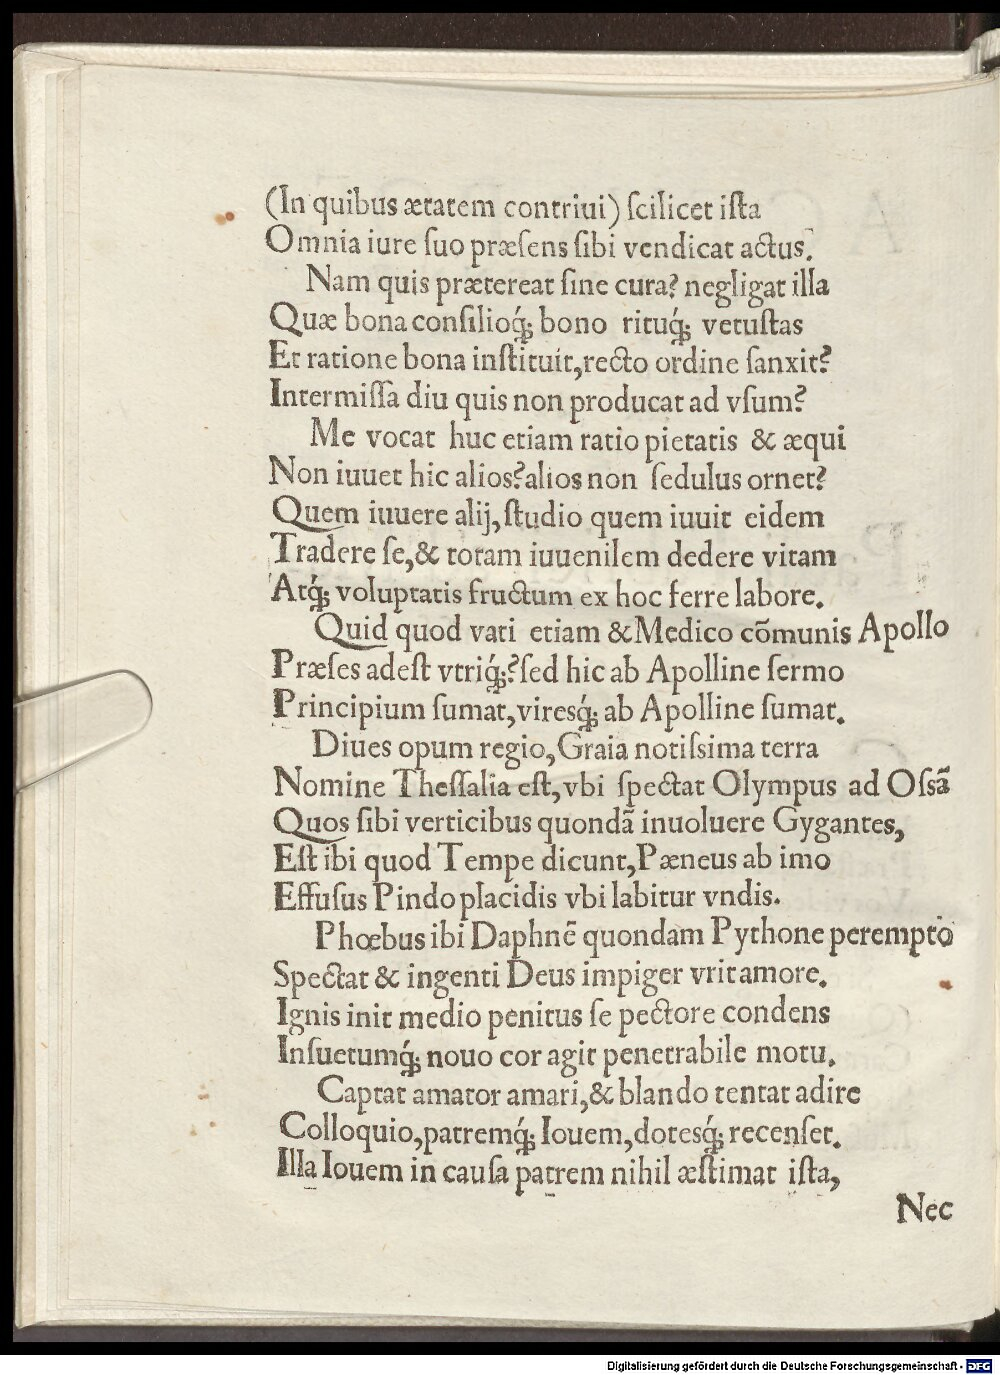 (In quibus ætatem contriui) ſcilicet iſta
Omnia iure ſuo præſens ſibi vendicat actus.
Nam quis prætereat ſine cura? negligat illa
Quæ bona conſilioq́; bono rituq́; vetuſtas
Et ratione bona inſtituit, recto ordine ſanxit?
Intermiſſa diu quis non producat ad vſum?
Me vocat huc etiam ratio pietatis & æqui
Non iuuet hic alios? alios non ſedulus ornet?
Quem iuuere alij, ſtudio quem iuuit eidem
Tradere ſe, & totam iuuenilem dedere vitam
Atq́; voluptatis fructum ex hoc ferre labore.
Quid quod vati etiam & Medico cõmunis Apollo
Præſes adeſt vtriq́;? ſed hic ab Apolline ſermo
Principium ſumat, viresq́; ab Apolline ſumat.
Diues opum regio, Graia notiſsima terra
Nomine Theſſalia eſt, vbi ſpectat Olympus ad Oſsã
Quos ſibi verticibus quondã inuoluere Gygantes,
Eſt ibi quod Tempe dicunt, Pæneus ab imo
Effuſus Pindo placidis vbi labitur vndis.
Phœbus ibi Daphnẽ quondam Pythone perempto
Spectat & ingenti Deus impiger vrit amore.
Ignis init medio penitus ſe pectore condens
Inſuetumq́; nouo cor agit penetrabile motu.
Captat amator amari, & blando tentat adire
Colloquio, patremq́; Iouem, dotesq́; recenſet.
Illa Iouem in cauſa patrem nihil æſtimat iſta,
Nec
Digitalisierung gefördert durch die Deutsche Forschungsgemeinschaft - DFG